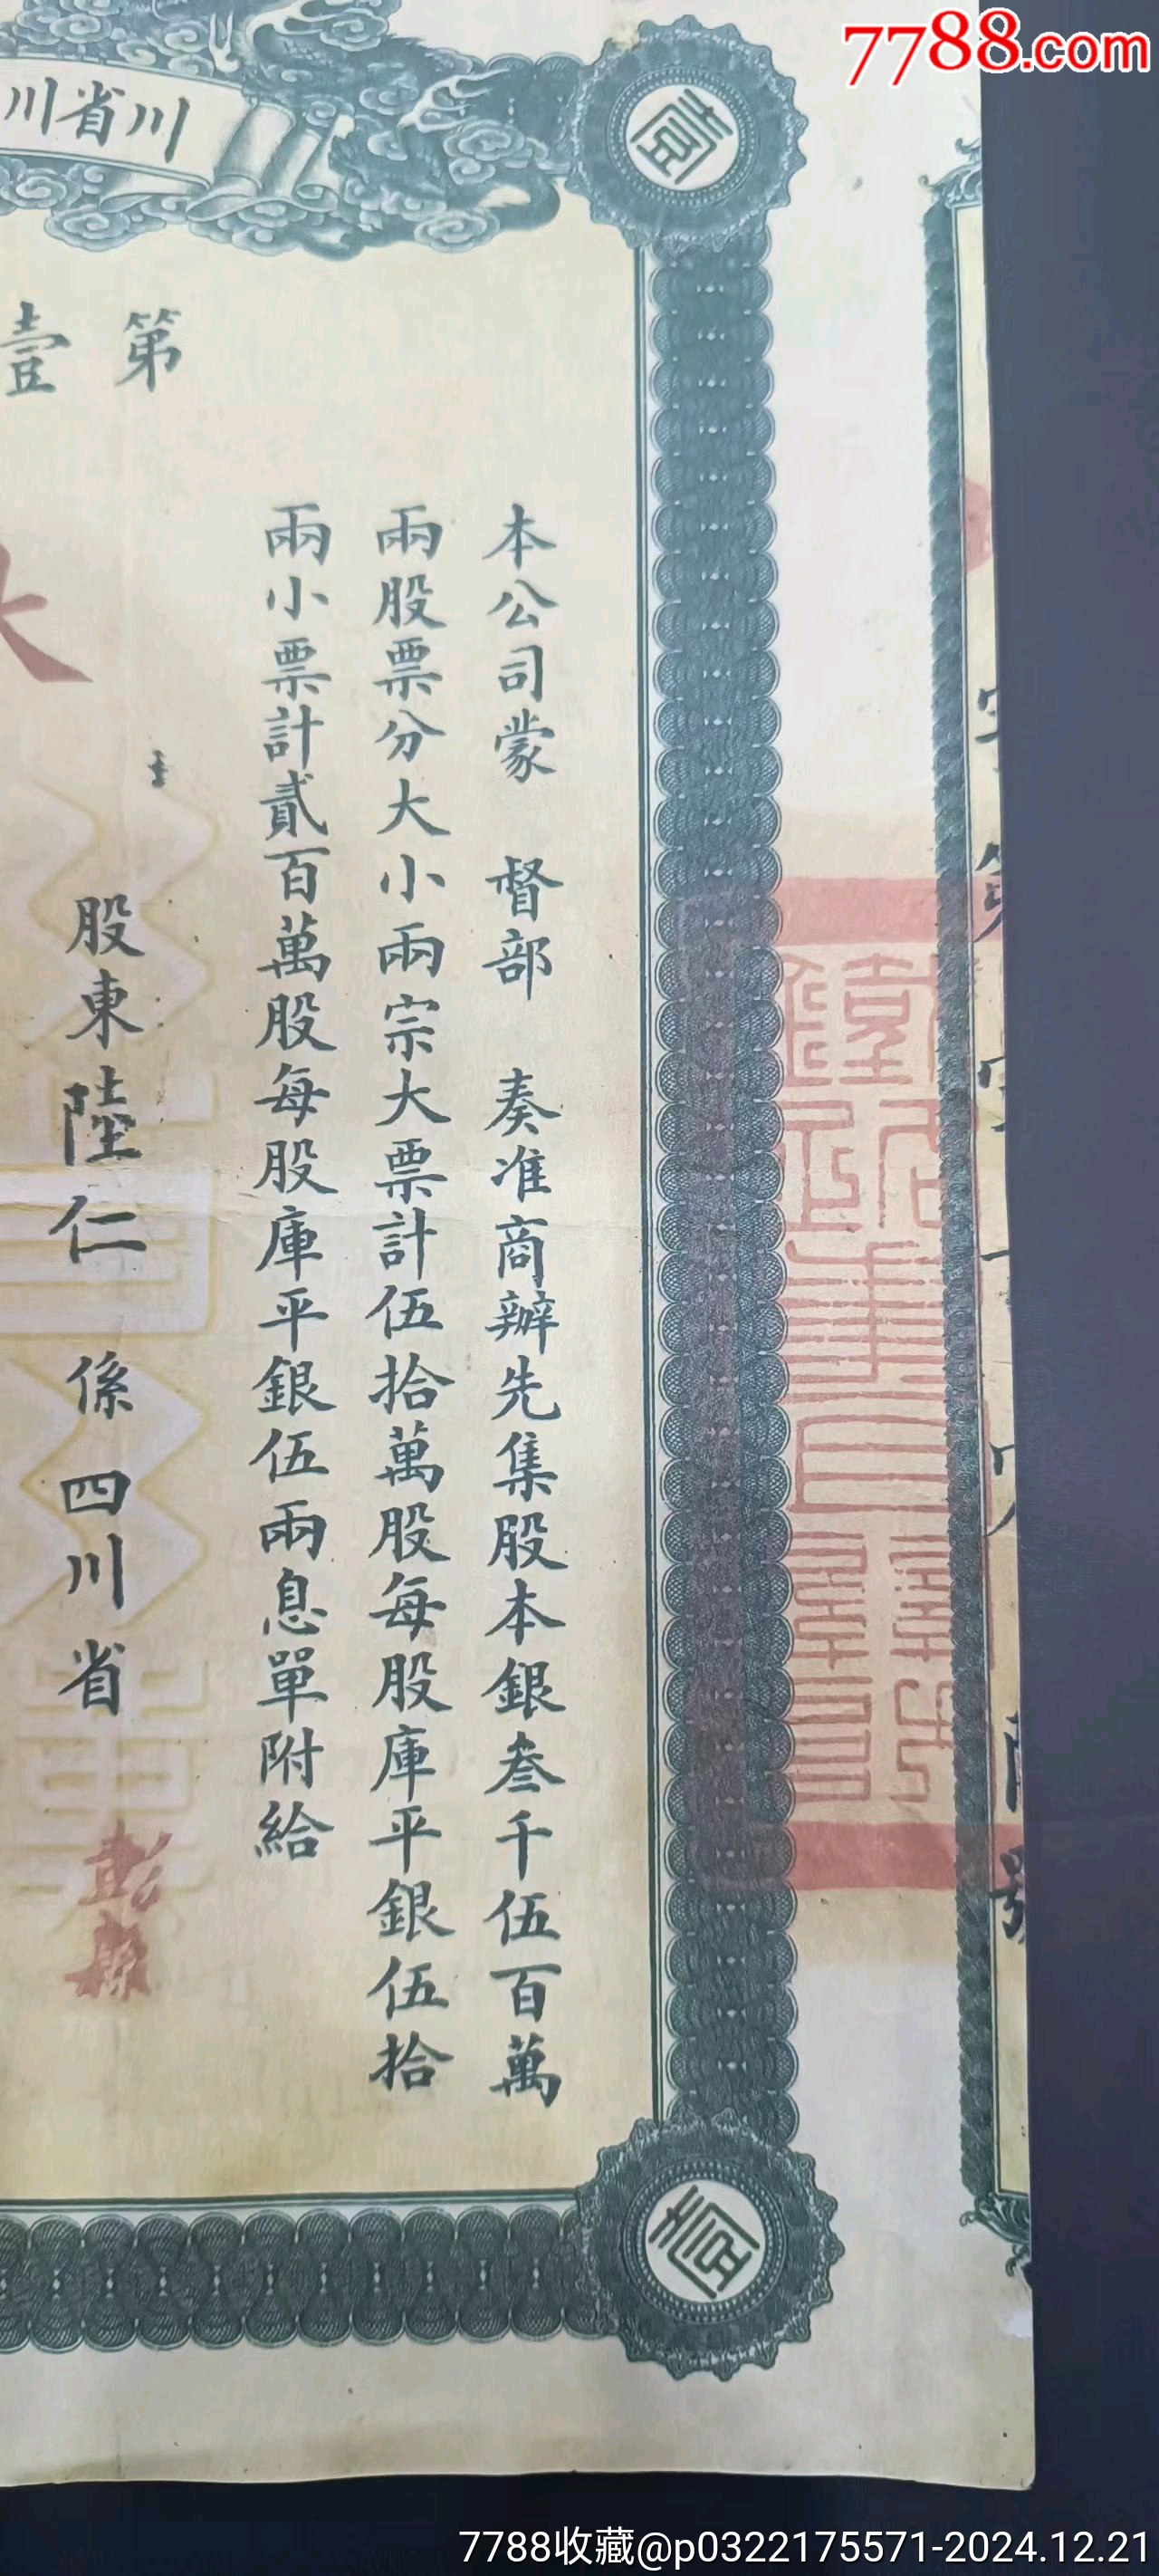 7788.com
川省川
壹
第
壹
本公司蒙 督部 奏准商辦先集股本銀叁千伍百萬
兩股票分大小兩宗大票計伍拾萬股每股庫平銀伍拾
兩小票計貳百萬股每股庫平銀伍兩息單附給
股東陸仁 係四川省彭縣
壹
7788收藏@p0322175571-2024.12.21